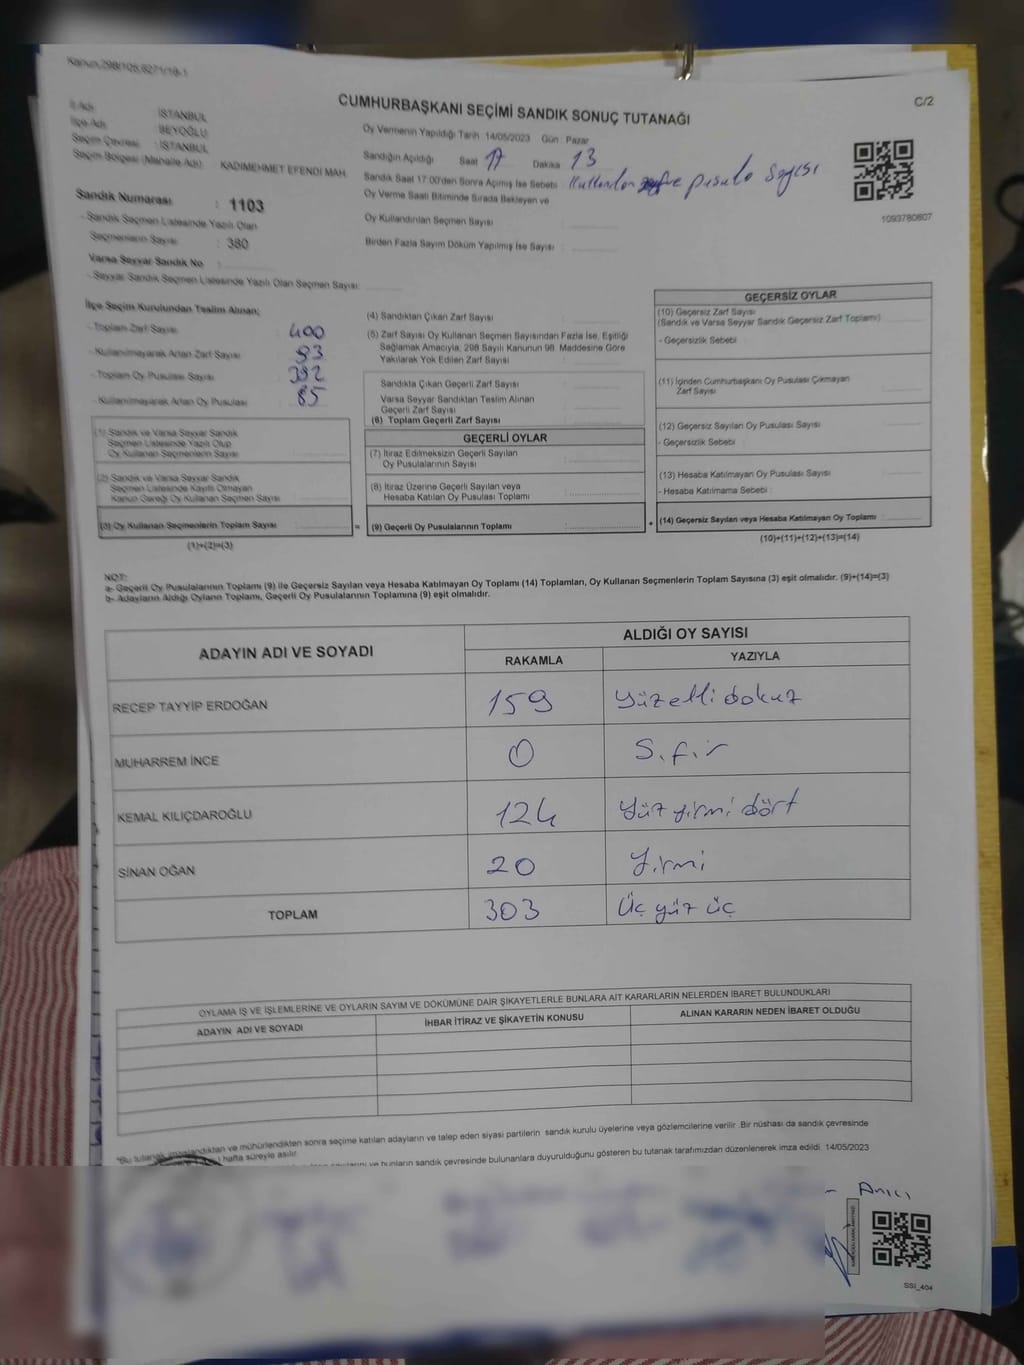 Kanun,298/105,6271/18-1
C/2
CUMHURBAŞKANI SEÇİMİ SANDIK SONUÇ TUTANAĞI
İl Adı : İSTANBUL
İlçe Adı : BEYOĞLU
Seçim Çevresi : İSTANBUL
Seçim Bölgesi (Mahalle Adı) : KADIMEHMET EFENDİ MAH.
Sandık Numarası : 1103
- Sandık Seçmen Listesinde Yazılı Olan
Seçmenlerin Sayısı : 380
Varsa Seyyar Sandık No :
- Seyyar Sandık Seçmen Listesinde Yazılı Olan Seçmen Sayısı:
Oy Vermenin Yapıldığı Tarih 14/05/2023 Gün : Pazar
Sandığın Açıldığı Saat 17 Dakika 13
Sandık Saat 17:00'den Sonra Açılmış İse Sebebi : Kullanılan pusula sayısı
Oy Verme Saati Bitiminde Sırada Bekleyen ve
Oy Kullandırılan Seçmen Sayısı :
Birden Fazla Sayım Döküm Yapılmış İse Sayısı :
1093780807
İlçe Seçim Kurulundan Teslim Alınan;
- Toplam Zarf Sayısı : 400
- Kullanılmayarak Artan Zarf Sayısı : 93
- Toplam Oy Pusulası Sayısı : 392
- Kullanılmayarak Artan Oy Pusulası : 85
(1) Sandık ve Varsa Seyyar Sandık
Seçmen Listesinde Yazılı Olup
Oy Kullanan Seçmenlerin Sayısı :
(2) Sandık ve Varsa Seyyar Sandık
Seçmen Listesinde Kayıtlı Olmayan
Kanun Gereği Oy Kullanan Seçmen Sayısı :
(3) Oy Kullanan Seçmenlerin Toplam Sayısı :
(1)+(2)=(3)
(4) Sandıktan Çıkan Zarf Sayısı :
(5) Zarf Sayısı Oy Kullanan Seçmen Sayısından Fazla İse, Eşitliği
Sağlamak Amacıyla, 298 Sayılı Kanunun 98. Maddesine Göre
Yakılarak Yok Edilen Zarf Sayısı :
Sandıkta Çıkan Geçerli Zarf Sayısı :
Varsa Seyyar Sandıktan Teslim Alınan
Geçerli Zarf Sayısı :
(6) Toplam Geçerli Zarf Sayısı :
GEÇERLİ OYLAR
(7) İtiraz Edilmeksizin Geçerli Sayılan
Oy Pusulalarının Sayısı :
(8) İtiraz Üzerine Geçerli Sayılan veya
Hesaba Katılan Oy Pusulası Toplamı :
= (9) Geçerli Oy Pusulalarının Toplamı :
GEÇERSİZ OYLAR
(10) Geçersiz Zarf Sayısı
(Sandık ve Varsa Seyyar Sandık Geçersiz Zarf Toplamı) :
- Geçersizlik Sebebi :
(11) İçinden Cumhurbaşkanı Oy Pusulası Çıkmayan
Zarf Sayısı :
(12) Geçersiz Sayılan Oy Pusulası Sayısı :
- Geçersizlik Sebebi :
(13) Hesaba Katılmayan Oy Pusulası Sayısı :
- Hesaba Katılmama Sebebi :
+ (14) Geçersiz Sayılan veya Hesaba Katılmayan Oy Toplamı :
(10)+(11)+(12)+(13)=(14)
NOT:
a- Geçerli Oy Pusulalarının Toplamı (9) ile Geçersiz Sayılan veya Hesaba Katılmayan Oy Toplamı (14) Toplamları, Oy Kullanan Seçmenlerin Toplam Sayısına (3) eşit olmalıdır. (9)+(14)=(3)
b- Adayların Aldığı Oyların Toplamı, Geçerli Oy Pusulalarının Toplamına (9) eşit olmalıdır.
ADAYIN ADI VE SOYADI
ALDIĞI OY SAYISI
RAKAMLA YAZIYLA
RECEP TAYYİP ERDOĞAN 159 Yüzelli dokuz
MUHARREM İNCE 0 Sıfır
KEMAL KILIÇDAROĞLU 124 Yüz yirmi dört
SİNAN OĞAN 20 Yirmi
TOPLAM 303 Üç yüz üç
OYLAMA İŞ VE İŞLEMLERİNE VE OYLARIN SAYIM VE DÖKÜMÜNE DAİR ŞİKAYETLERLE BUNLARA AİT KARARLARIN NELERDEN İBARET BULUNDUKLARI
ADAYIN ADI VE SOYADI İHBAR İTİRAZ VE ŞİKAYETİN KONUSU ALINAN KARARIN NEDEN İBARET OLDUĞU
*Bu tutanak imzalandıktan ve mühürlendikten sonra seçime katılan adayların ve talep eden siyasi partilerin sandık kurulu üyelerine veya gözlemcilerine verilir .Bir nüshası da sandık çevresinde
hafta süreyle asılır.
ve bunların sandık çevresinde bulunanlara duyurulduğunu gösteren bu tutanak tarafımızdan düzenlenerek imza edildi. 14/05/2023
SSI_404